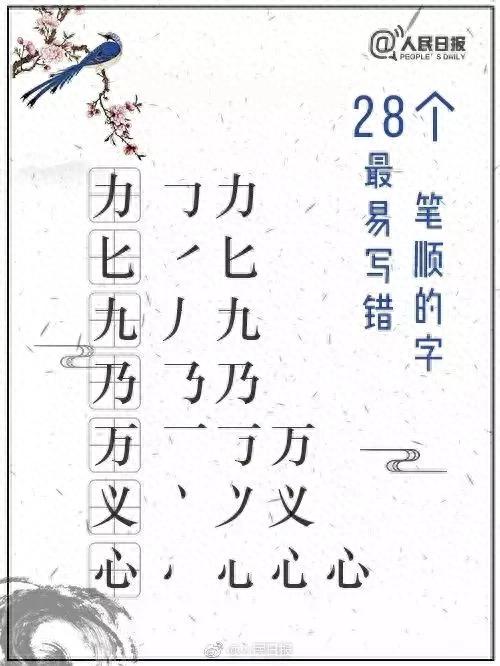 @人民日报
PEOPLE'S DAILY
28个
最易写错
笔顺的字
力 ㇆ 力
匕 ㇒ 匕
九 丿 九
乃 ㇋ 乃
万 一 丆 万
义 丶 丷 义
心 丶 心 心 心
@人民日报